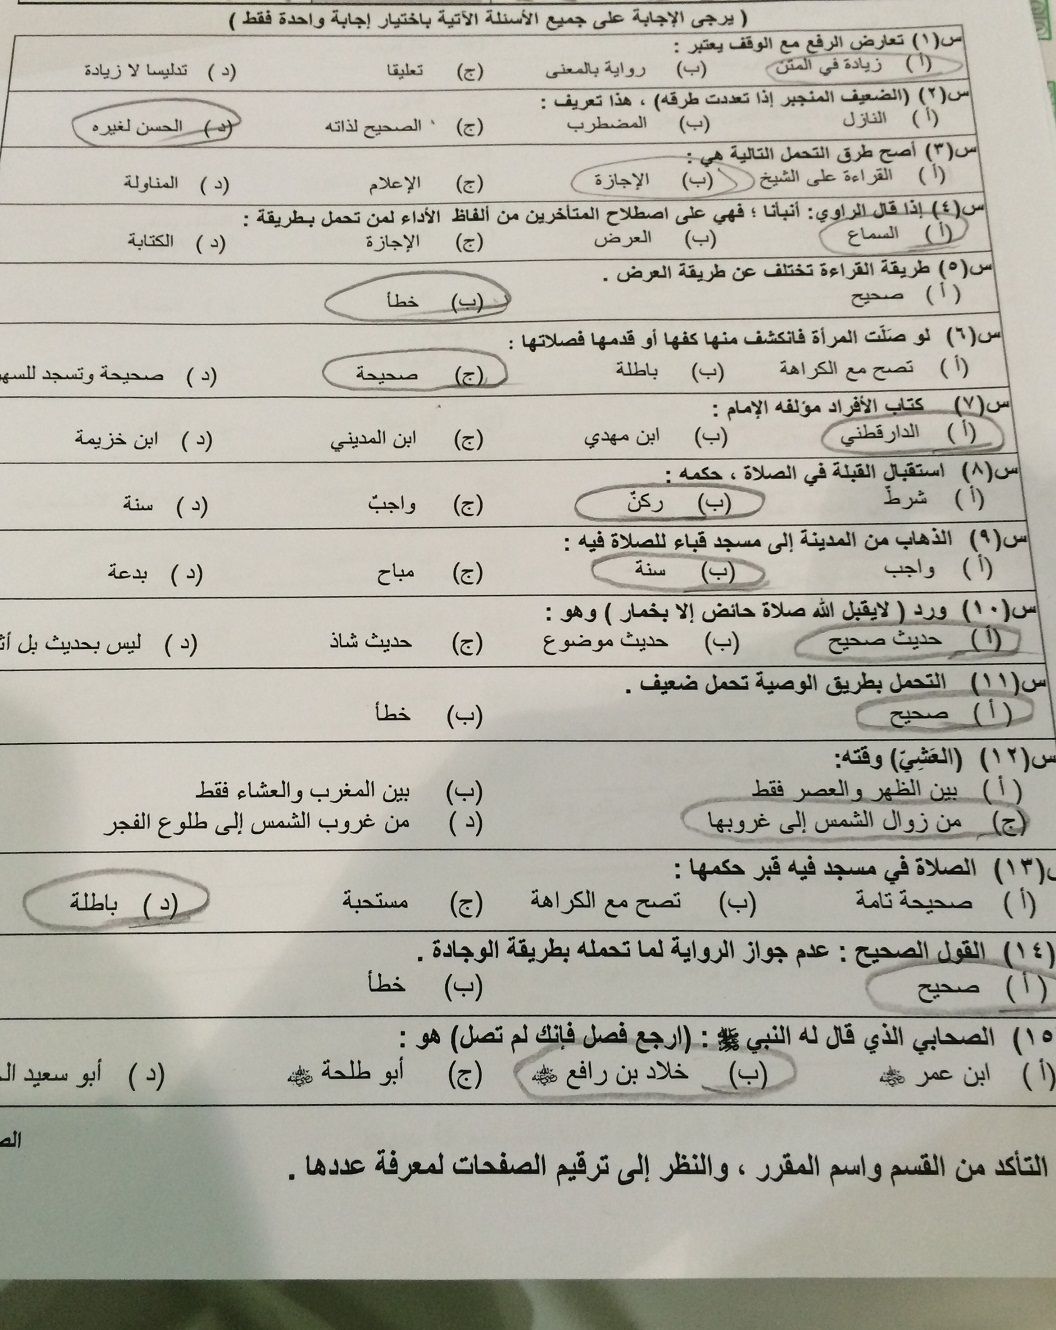 ( يرجى الإجابة على جميع الأسئلة الآتية باختيار إجابة واحدة فقط )
س(١) تعارض الرفع مع الوقف يعتبر :
(أ) زيادة في المتن (ب) رواية بالمعنى (ج) تعليقا (د) تدليسا لا زيادة
س(٢) (الضعيف المنجبر إذا تعددت طرقه) ، هذا تعريف :
(أ) النازل (ب) المضطرب (ج) الصحيح لذاته (د) الحسن لغيره
س(٣) أصح طرق التحمل التالية هي :
(أ) القراءة على الشيخ (ب) الإجازة (ج) الإعلام (د) المناولة
س(٤) إذا قال الراوي: أنبأنا ؛ فهي على اصطلاح المتأخرين من ألفاظ الأداء لمن تحمل بطريقة :
(أ) السماع (ب) العرض (ج) الإجازة (د) الكتابة
س(٥) طريقة القراءة تختلف عن طريقة العرض .
(أ) صحيح (ب) خطأ
س(٦) لو صلّت المرأة فانكشف منها كفها أو قدمها فصلاتها :
(أ) تصح مع الكراهة (ب) باطلة (ج) صحيحة (د) صحيحة وتسجد للسه
س(٧) كتاب الأفراد مؤلفه الإمام :
(أ) الدارقطني (ب) ابن مهدي (ج) ابن المديني (د) ابن خزيمة
س(٨) استقبال القبلة في الصلاة ، حكمه :
(أ) شرطٌ (ب) ركنٌ (ج) واجبٌ (د) سنة
س(٩) الذهاب من المدينة إلى مسجد قباء للصلاة فيه :
(أ) واجب (ب) سنة (ج) مباح (د) بدعة
س(١٠) ورد ( لايقبل الله صلاة حائض إلا بخمار ) وهو :
(أ) حديث صحيح (ب) حديث موضوع (ج) حديث شاذ (د) ليس بحديث بل
س(١١) التحمل بطريق الوصية تحمل ضعيف .
(أ) صحيح (ب) خطأ
س(١٢) (العَشِيّ) وقته:
(أ) بين الظهر والعصر فقط (ب) بين المغرب والعشاء فقط
(ج) من زوال الشمس إلى غروبها (د) من غروب الشمس إلى طلوع الفجر
س(١٣) الصلاة في مسجد فيه قبر حكمها :
(أ) صحيحة تامة (ب) تصح مع الكراهة (ج) مستحبة (د) باطلة
(١٤) القول الصحيح : عدم جواز الرواية لما تحمله بطريقة الوجادة .
(أ) صحيح (ب) خطأ
(١٥) الصحابي الذي قال له النبي ﷺ : (ارجع فصل فإنك لم تصل) هو :
(أ) ابن عمر (ب) خلاد بن رافع (ج) أبو طلحة (د) أبو سعيد
التأكد من القسم واسم المقرر ، والنظر إلى ترقيم الصفحات لمعرفة عددها .